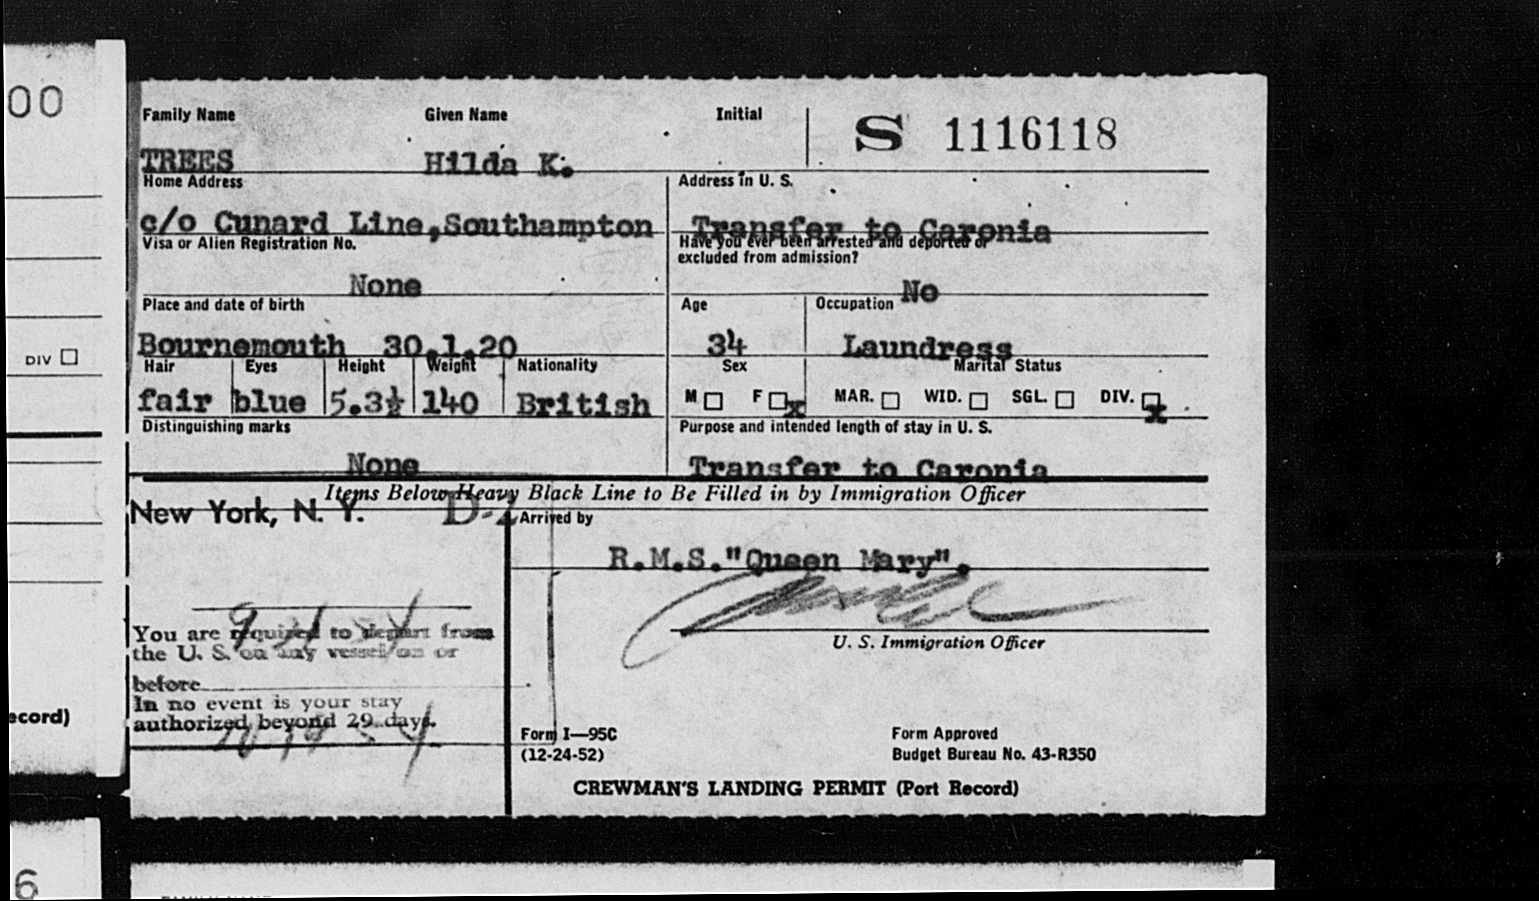 00
DIV
ecord)
6
Family Name Given Name Initial
S 1116118
TREES Hilda K.
Home Address Address in U. S.
c/o Cunard Line,Southampton Transfer to Caronia
Visa or Alien Registration No. Have you ever been arrested and deported or
excluded from admission?
None No
Place and date of birth Age Occupation
Bournemouth 30.1.20 34 Laundress
Hair Eyes Height Weight Nationality Sex Marital Status
fair blue 5.3½ 140 British M F x MAR. WID. SGL. DIV. x
Distinguishing marks Purpose and intended length of stay in U. S.
None Transfer to Caronia
Items Below Heavy Black Line to Be Filled in by Immigration Officer
New York, N. Y.
Arrived by
R.M.S."Queen Mary".
U. S. Immigration Officer
You are required to depart from
the U. S. on any vessel on or
before
In no event is your stay
authorized beyond 29 days.
Form I—95C Form Approved
(12-24-52) Budget Bureau No. 43-R350
CREWMAN'S LANDING PERMIT (Port Record)